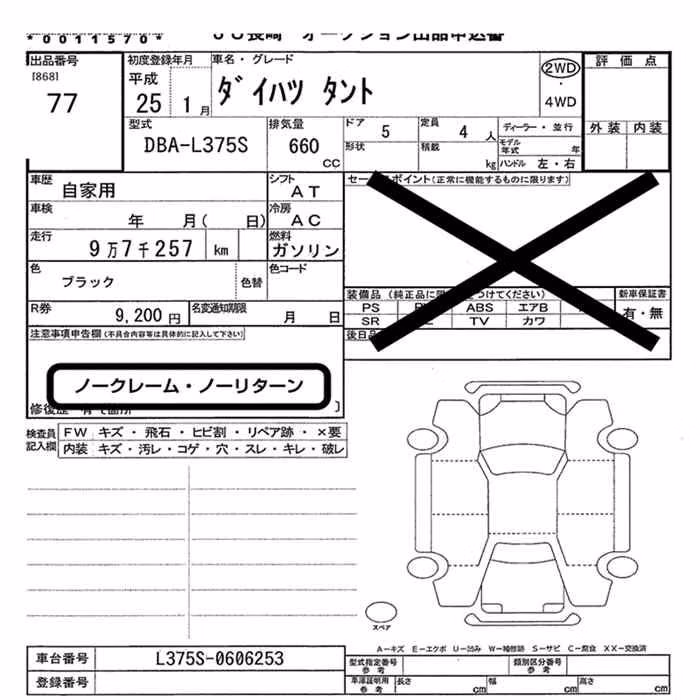 *0011570*
JU長崎 オークション出品申込書
出品番号 初度登録年月 車名・グレード
[868] 平成
77 25 1月 ダイハツ タント 2WD・4WD 評価点
型式 排気量 ドア 5 定員 4人 ディーラー・並行 外装 内装
DBA-L375S 660CC 形状 積載 kg モデル年式 年
ハンドル 左・右
車歴 自家用 シフト AT セールスポイント(正常に機能するものに限ります)
車検 年 月( 日) 冷房 AC
走行 9万7千257 km 燃料 ガソリン
色 ブラック 色替 色コード
装備品(純正品に限 つけてください) 新車保証書
R券 9,200円 名変通知期限 月 日 PS ABS エアB 有・無
SR TV カワ
注意事項申告欄(不具合内容等は具体的に記入して下さい) 後日
ノークレーム・ノーリターン
修復歴
検査員記入欄 FW キズ・飛石・ヒビ割・リペア跡・×要
内装 キズ・汚レ・コゲ・穴・スレ・キレ・破レ
スペア
A-キズ E-エクボ U-凹み W-補修跡 S-サビ C-腐食 XX-交換済
車台番号 L375S-0606253 型式指定番号参考 類別区分番号参考
登録番号 車庫証明用参考 長さ cm 幅 cm 高さ cm